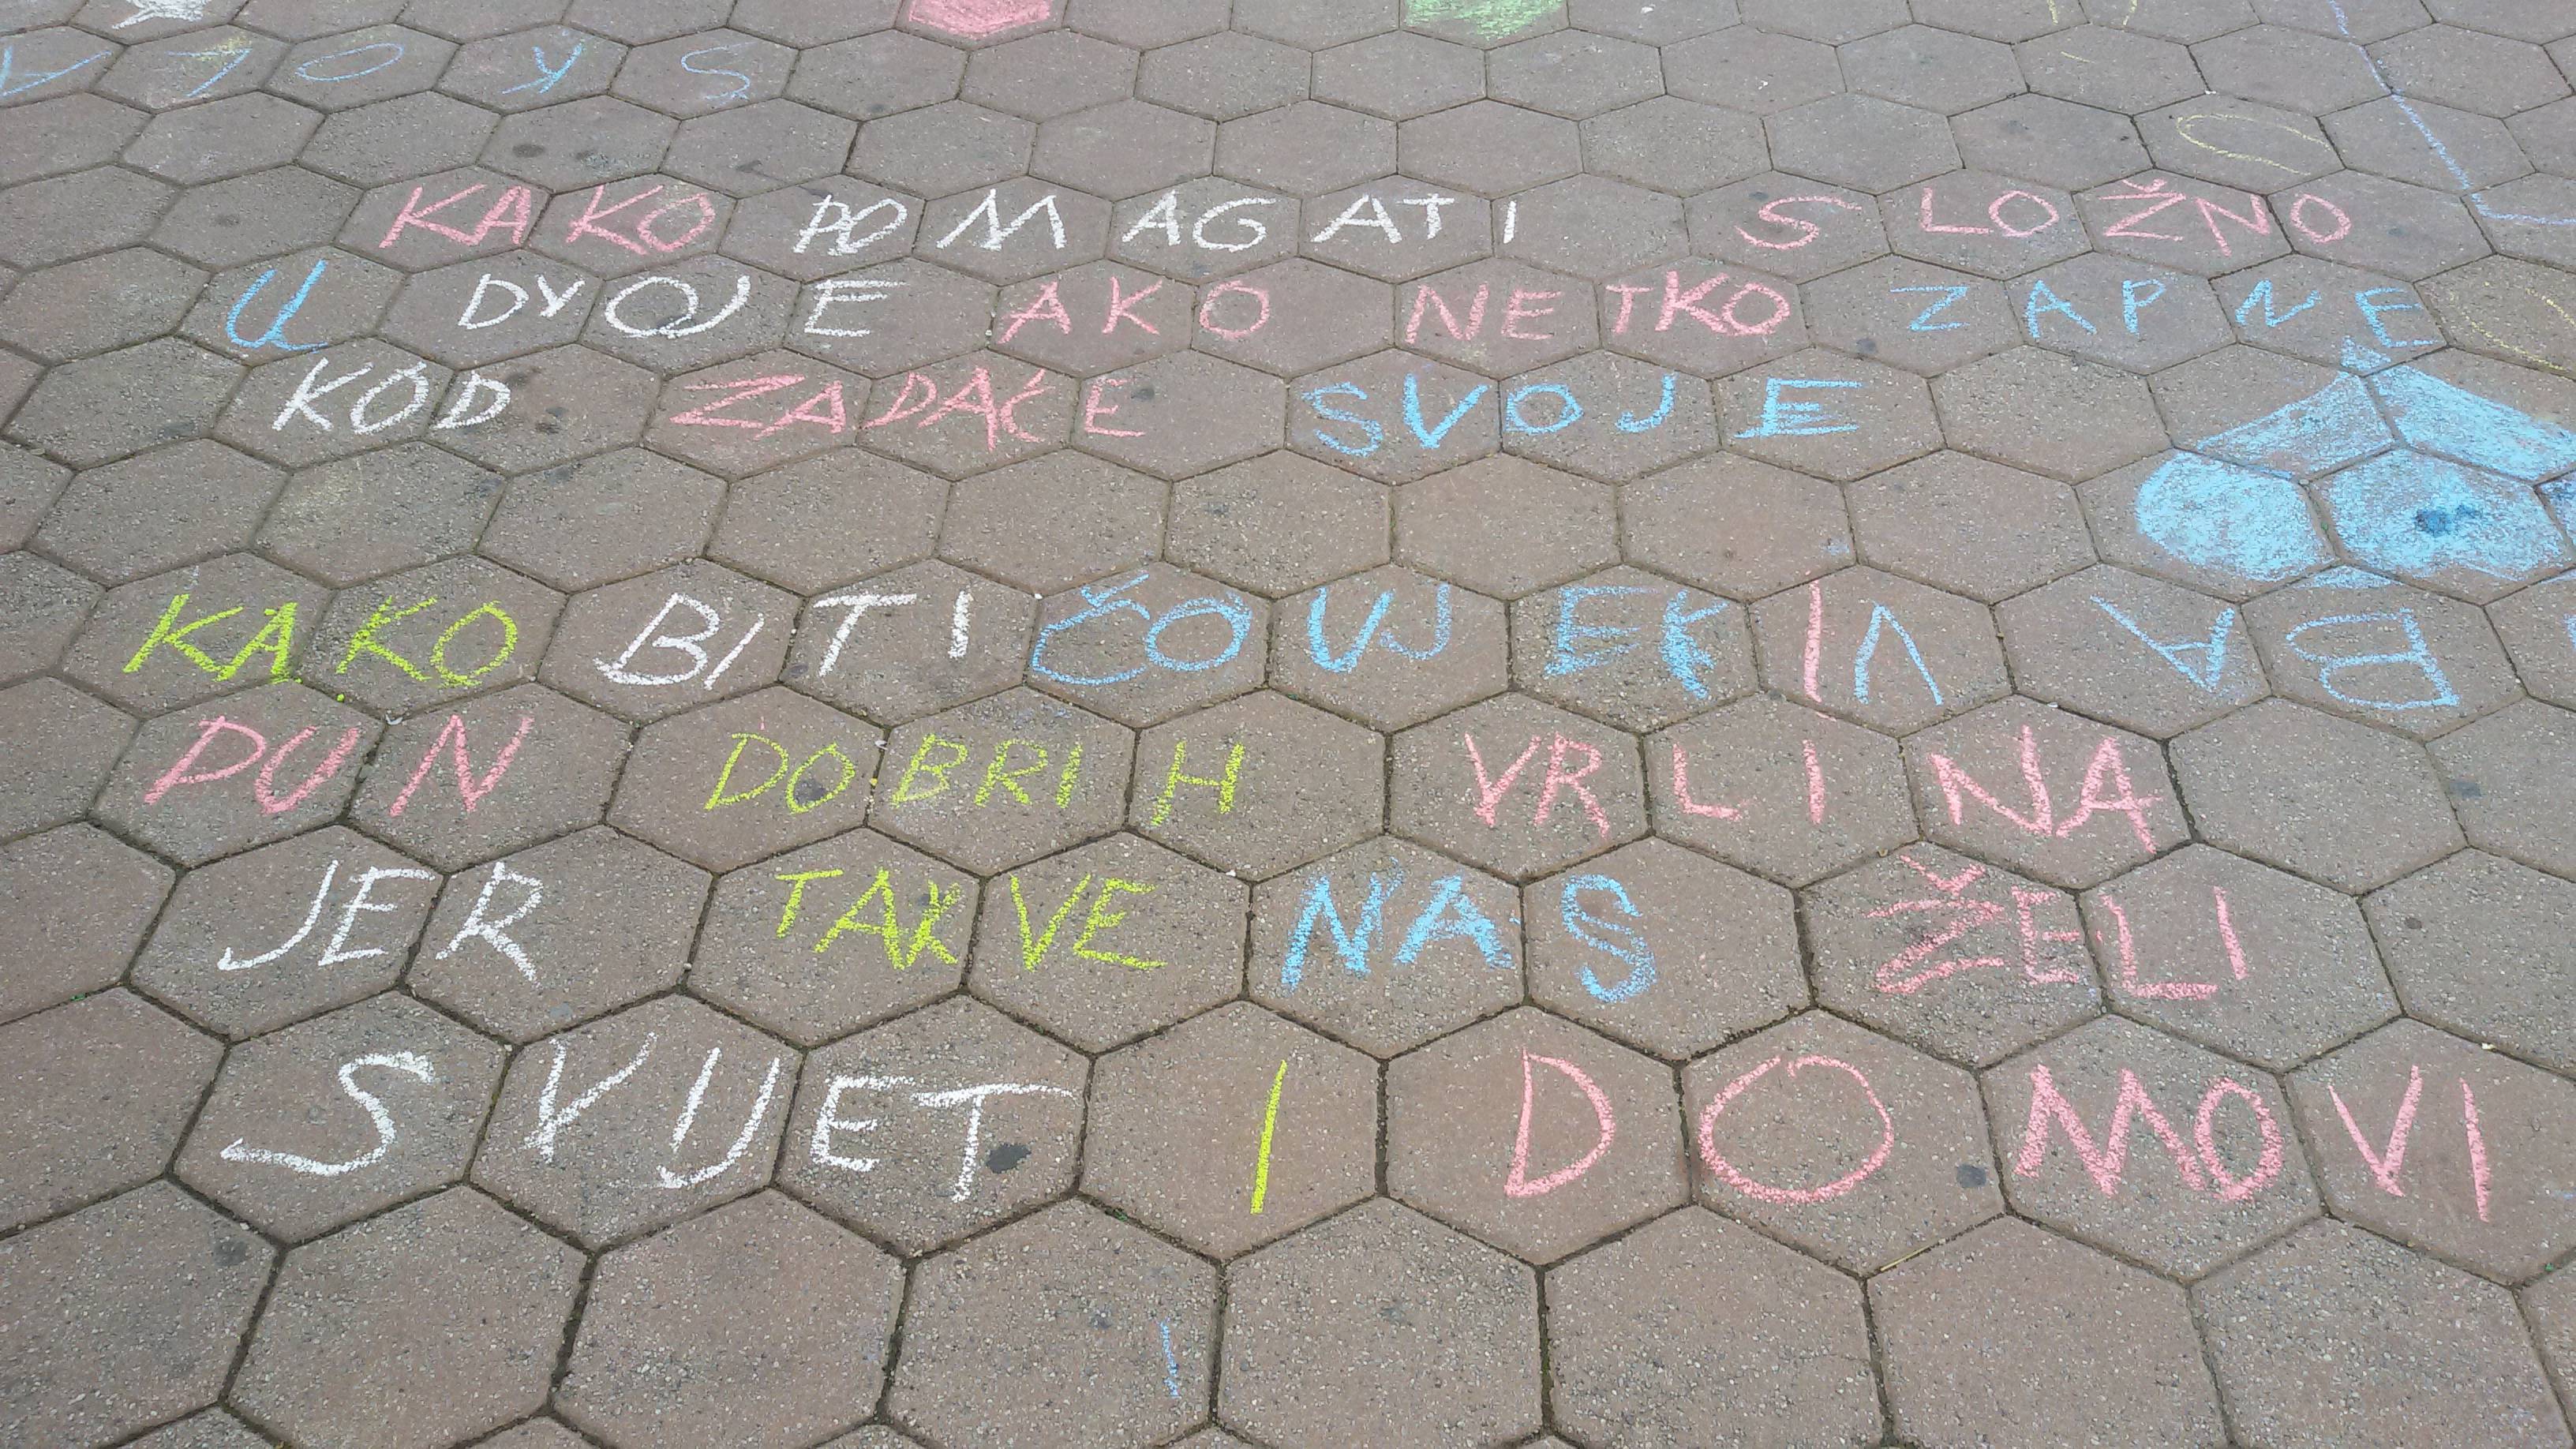 SKOLA
KAKO POMAGATI SLOŽNO
U DVOJE AKO NETKO ZAPNE
KOD ZADAĆE SVOJE
KAKO BITI ČOVJEK I
PUN DOBRIH VRLINA
JER TAKVE NAS ŽELI
SVIJET I DOMOVI